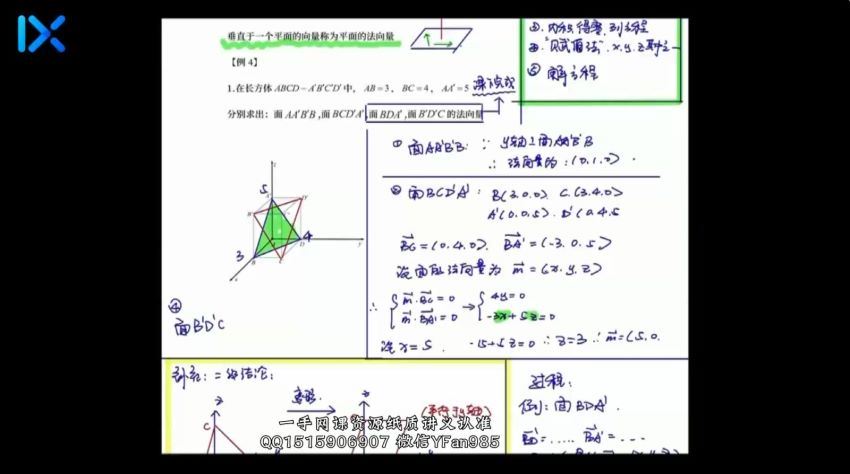 IX
垂直于一个平面的向量称为平面的法向量
【例 4】
1.在长方体 ABCD－A'B'C'D' 中， AB=3， BC=4， AA'=5
课下完成
分别求出：面 AA'B'B，面 BCD'A'，面 BDA'，面 B'D'C 的法向量
②. 内积得零，列方程
③. "赋值法" . x, y, z
⑤ 解方程
① 面AA'B'B: ∵ y轴⊥面AA'B'B
∴ 法向量为: (0.1.0)
② 面BCD'A': B(3.0.0) C.(3.4.0)
A'(0.0.5). D'(0.4.5
BC=(0.4.0). BA'=(-3.0.5)
设面的法向量为 m=(x.y.z)
∴ { m·BC=0 → { 4y=0
m·BA'=0 -3x+5z=0
设x=5. -15+5z=0 ∴z=3 ∴m=(5.0.
5
4
3
④
面B'D'C
结论:
过程:
例: 面BDA'.
BD=.... BA'=...
C
(平行于y轴)
一手网课资源纸质讲义认准
QQ1515906907 微信YFan985